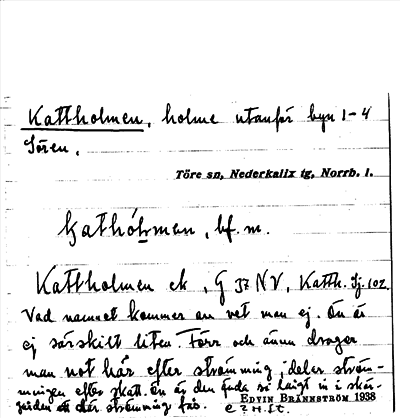 Kattholmen, holme utanför byn 1-4
Sören.
Töre sn, Nederkalix tg, Norrb. l.
bf. m.
Kattholmen ek, G 37 NV, Kattk. Sj. 102.
Vad namnet kommer av vet man ej. Ön är
ej särskilt liten. Förr och ännu drager
man not här efter strömming, deles ström-
mingen efter skatt. Ön är den enda så långt in i skär-
gården där strömming fås.
EDVIN BRÄNNSTRÖM 1938